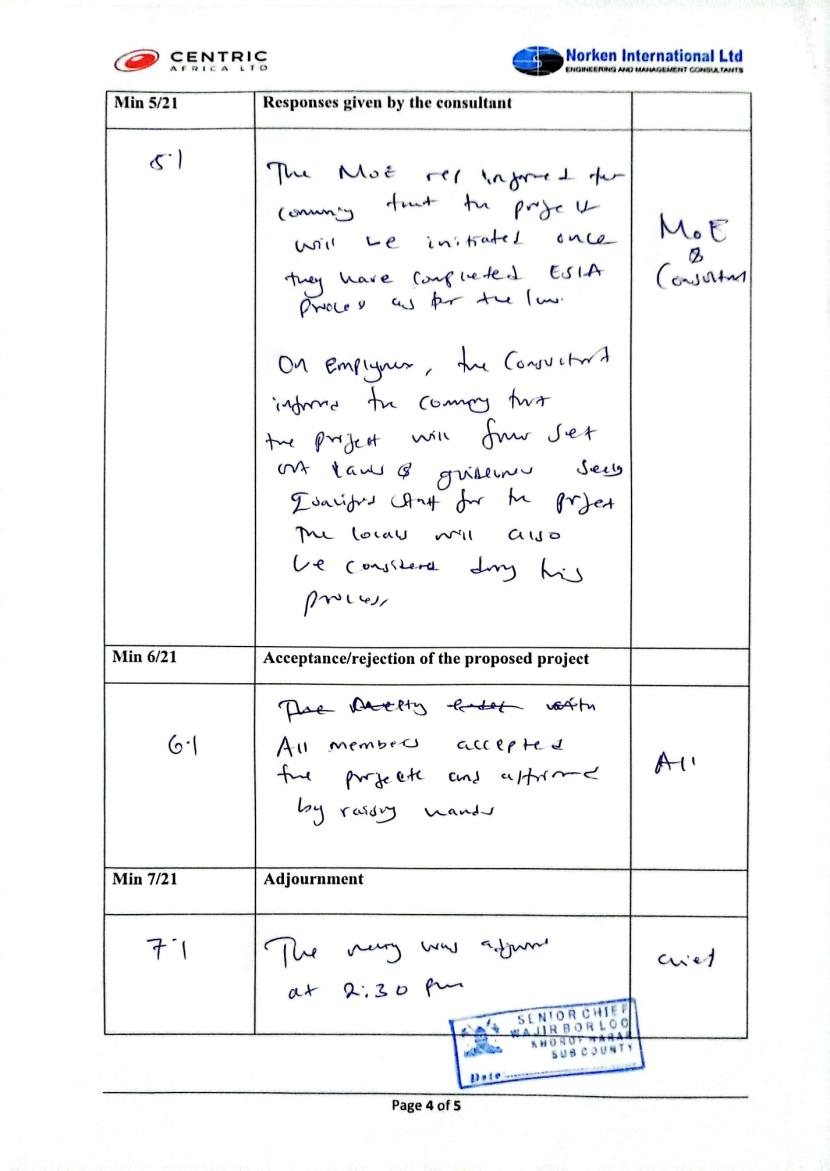 CENTRIC
AFRICA LTD
Norken International Ltd
ENGINEERING AND MANAGEMENT CONSULTANTS
Min 5/21 Responses given by the consultant
5.1
The MoE rep informed the
commny that the project
will be initiated once
they have completed ESIA
process as per the law.
MoE
&
Consultant
On Employmen, the Consultant
informed the commny that
the project will
laws & guidelines
Qualified staff for the project
The locals will also
be considered during this
process,
Min 6/21 Acceptance/rejection of the proposed project
6.1
The with
All members accepted
the projecte and affirmed
by raising hands
All
Min 7/21 Adjournment
7.1
The meeting was adjourned
at 2:30 pm
chief
SENIOR CHIEF
WAJIR BOR LOC
KHOROF HARAR
SUB COUNTY
Date:
Page 4 of 5